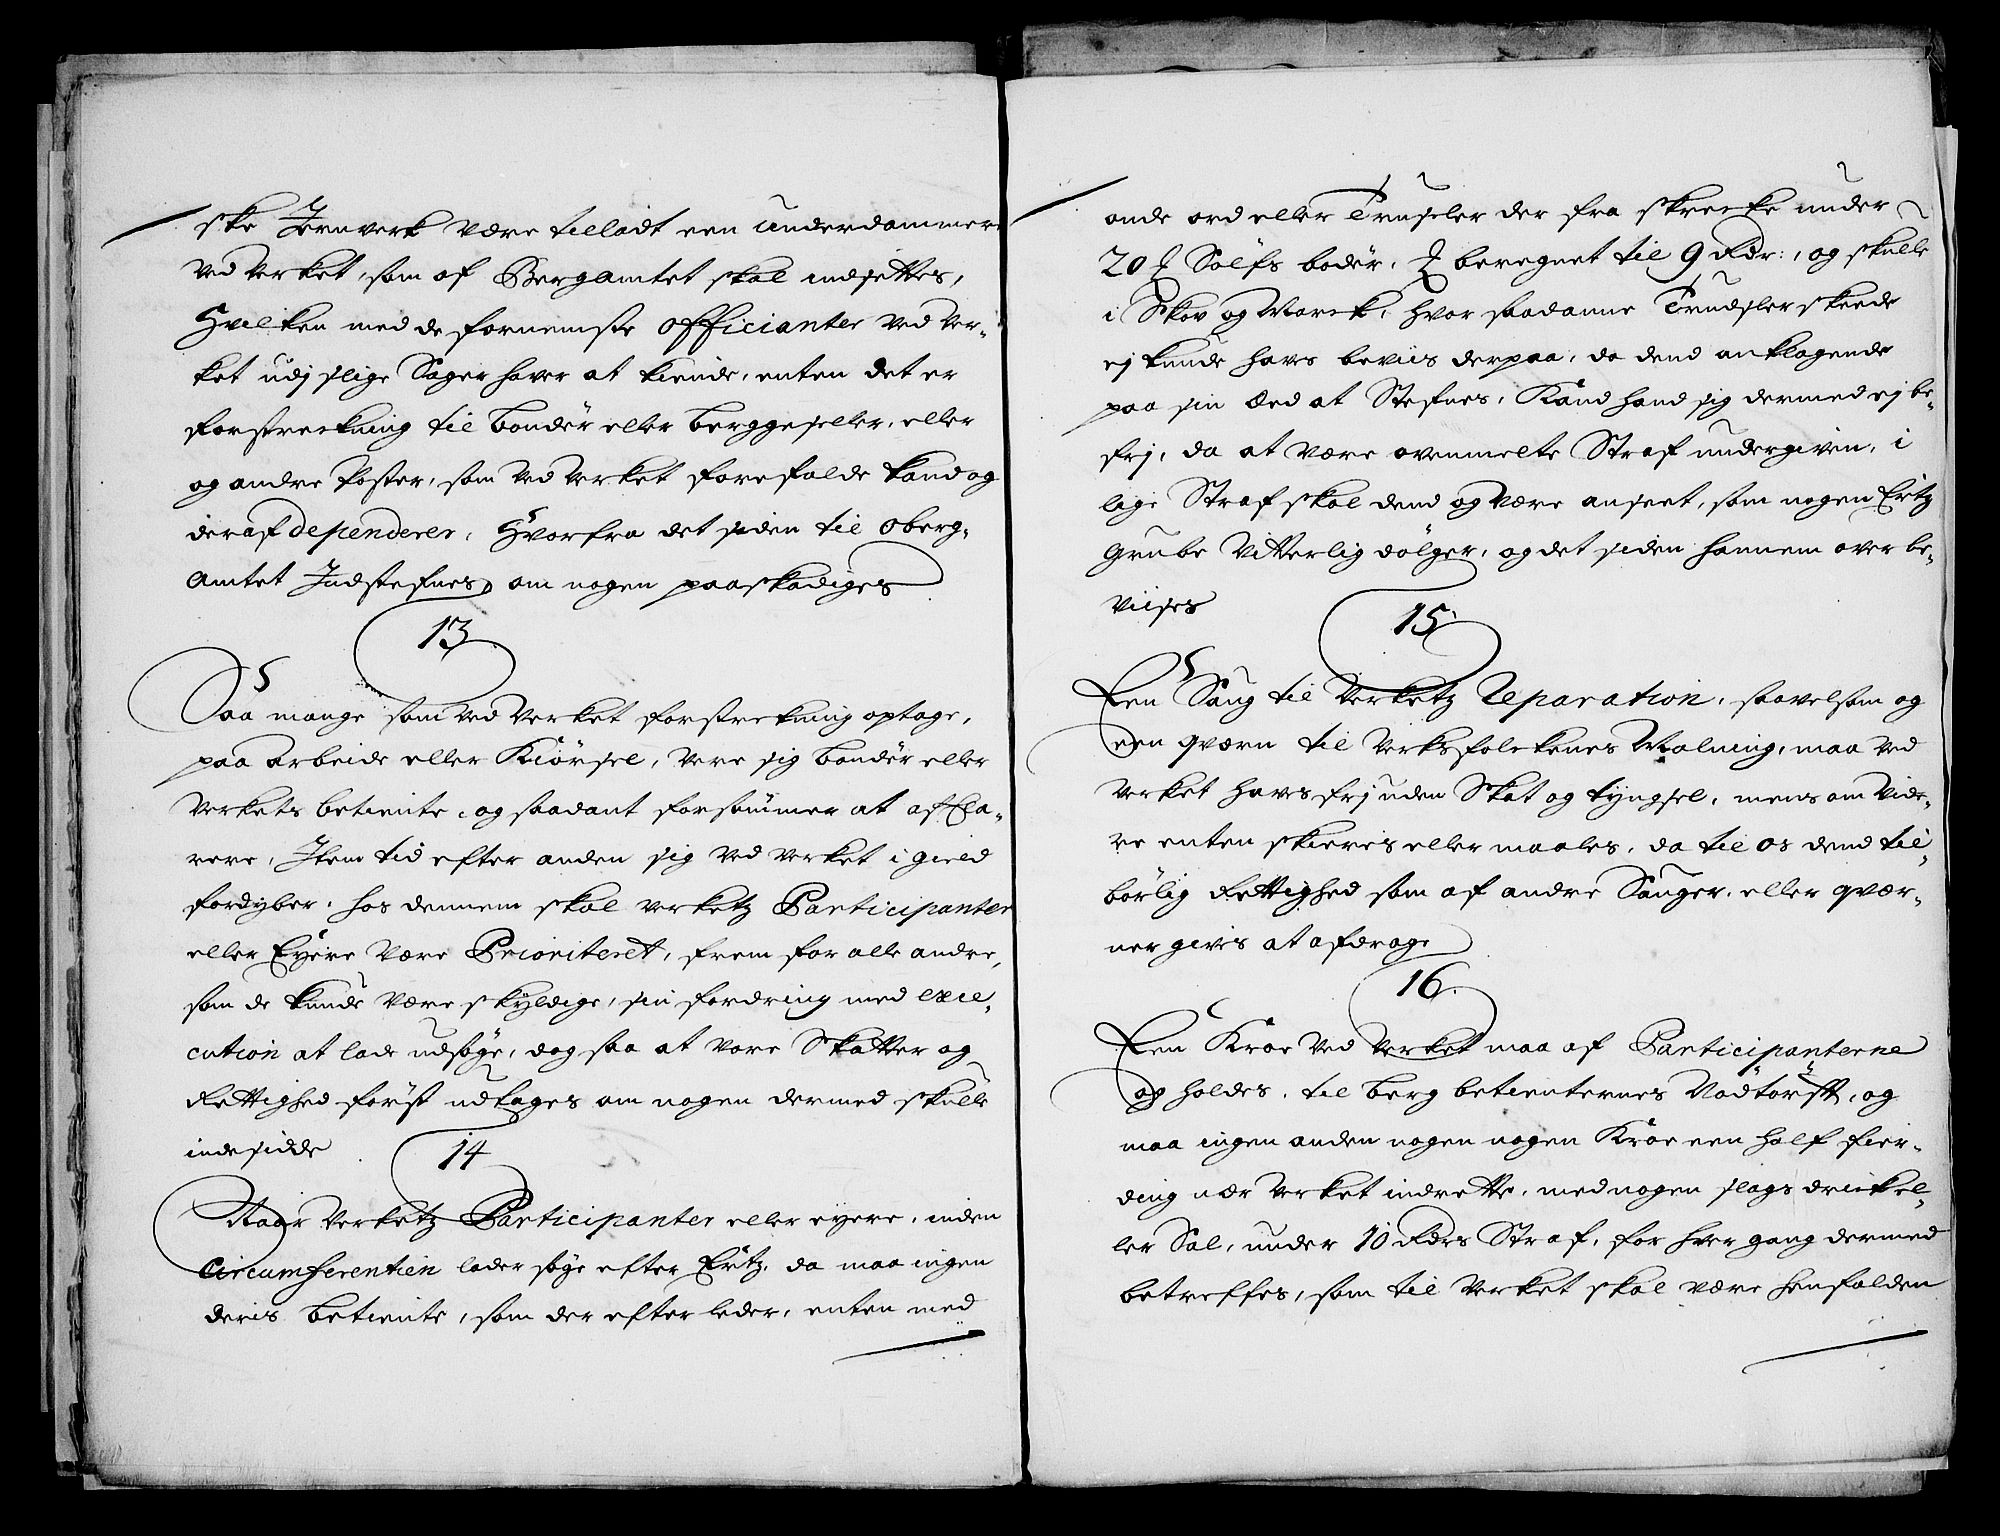 ske Jernverk være tilladt een underdommere
ved verket, som af Bergamtet skal indsettes,
Hvilken med de fornemste officianter ved ver-
ket udj slige Sager haver at kiende, enten det er
forstrekning til bønder eller berggeseller, eller
og andre Poster, som ved verket forefalde kand og
deraf dependerer, Hvorfra det siden til oberg-
Amtet Indstefnes, om nogen paaskadiges
13
Saa mange som ved verket forstrekning optage,
paa arbeide eller Kiörsel, vere sig bönder eller
verkets betiente, og saadant forsömmer at afcla-
rere, Item tid efter anden sig ved verket i gield
fordyber, hos dennem skal verketz Participanter
eller Eyere være Prioriteret, frem for alle andre,
som de kunde være skyldige, sin fordring med exe-
cution at lade udsöge, dog saa at vore Skatter og
Rettighed först udtages om nogen dermed skulle
indesidde
14
Naar verketz Participanter eller eyere, inden
Circumferentien lader söge efter Ertz, da maa ingen
deris betiente, som der efter leder, enten med
onde ord eller Truseler der fra skrecke under
20 Sölfs bodër, beregnet til 9 Rdr:, og skulle
i Skov og Marck, hvor saadanne Trudsler skeede
ej kunde haves beviis derpaa, da dend anklagende
paa sin Eed at Stefnes, Kand hand sig dermed ej be-
frj, da at være ovenmelte Straf undergiven, i
lige Straf skal dend og være anseet, som nogen Ertz
Grube vitterlig dölger, og det siden hannem over be-
viises
15
Een Saug til Verketz Reparation, saavelsom og
een qværn til verksfolckenes Malning, maa ved
verket haves frj uden Skat og tyngsel, mens om vide-
re enten skieris eller maales, da til os dend til-
börlig Rettighed som af andre Sauger, eller qvær-
ner gives at afdrage
16.
Een Kroe ved verket maa af Participanterne
og holdes, til berg betienternes Nödtörfft, og
maa ingen anden nogen nogen Kroe een half fier-
ding nær verket indrette, med nogen slags drickel-
ler Sal, under 10 Rdrs Straf, for hver gang dermed
betreffes, som til verket skal være henfalden